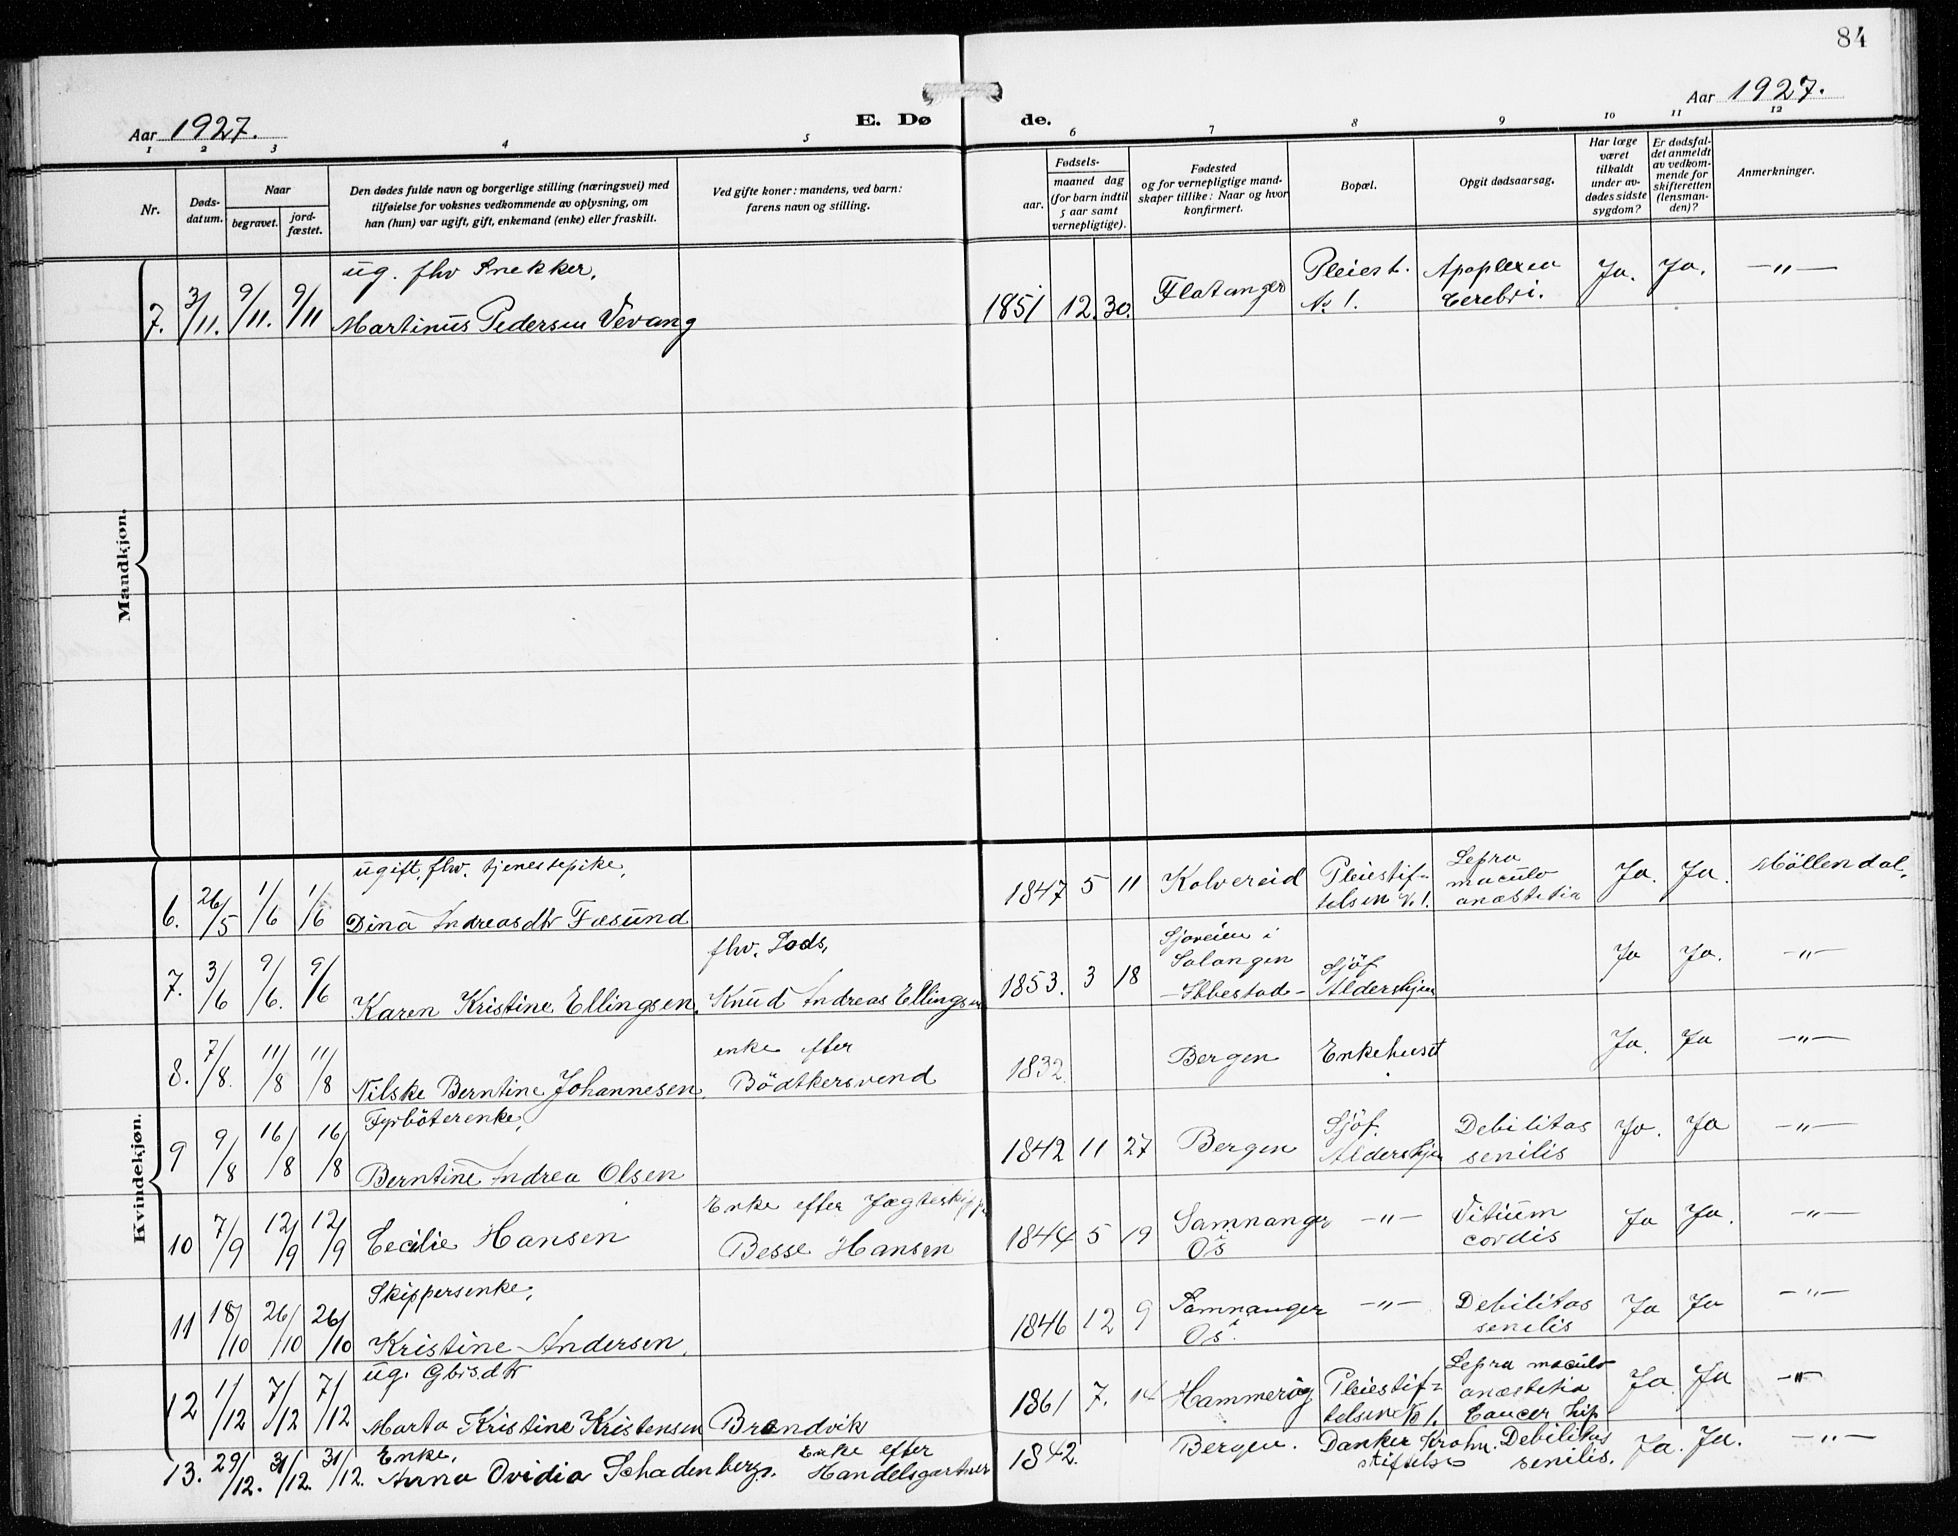 84
Aar 1927. E. Dø de. Aar 1927.
1 2 3 4 5 6 7 8 9 10 11 12
Nr. Døds-datum. Naar begravet. jord-fæstet. Den dødes fulde navn og borgerlige stilling (næringsvei) med tilføielse for voksnes vedkommende av oplysning, om han (hun) var ugift, gift, enkemand (enke) eller fraskilt. Ved gifte koner: mandens, ved barn: farens navn og stilling. Fødsels- aar. maaned dag (for barn indtil 5 aar samt vernepligtige). Fødested og for vernepligtige mand-skaper tillike: Naar og hvor konfirmert. Bopæl. Opgit dødsaarsag. Har læge været tilkaldt under av-dødes sidste sygdom? Er dødsfal-det anmeldt av vedkom-mende for skifteretten (lensman-den)? Anmerkninger.
Mandkjøn.
7. 3/11. 9/11. 9/11 ug. fhv Snekker, Martinus Pedersen Vevang 1851 12. 30. Flatanger Pleiest. No 1. Apoplexia Cerebri. Ja. Ja. —"—
Kvindekjøn.
6. 26/5 1/6 1/6 ugift, fhv. tjenestepike, Dina Andreasdtr Fæsund 1847 5 11 Kolvereid Pleiestif-telsen No 1. Lepra maculo anæstetia Ja. Ja. Möllendal.
7. 3/6 9/6. 9/6 Karen Kristine Ellingsen. fhv. Lods, Knud Andreas Ellingsen 1853. 3 18 Sjøveien i Salangen —Ibbestad— Sjöf. Aldershjem Ja Ja. —"—
8. 7/8. 11/8 11/8 Nilske Berntine Johannesen enke efter Bödtkersvend 1832. Bergen Enkehuset Ja. Ja —"—
9 9/8 16/8 16/8 Fyrböterenke, Berntine Andrea Olsen 1842 11 27 Bergen Sjöf. Aldershjem Debilitas senilis Ja. Ja —"—
10 7/9 12/9 12/9 Cecilie Hansen Enke efter Jægteskipper Besse Hansen 1844 5 19 Samnanger i Os —"— Vitium cordis Ja Ja. —"—
11 18/10 26/10 26/10 Skippersenke, Kristine Andersen. 1846 12 9 Samnanger i Os. —"— Debilitas senilis Ja Ja —"—
12 1/12 7/12 7/12 ug. Gbrsdtr Marta Kristine Kristensen Brandvik 1861 7. 14 Hammerøg Pleiestif-telsen No 1. Lepra maculo anæstetia Cancer hip Ja Ja —"—
13. 29/12. 31/12. 31/12. Enke, Anna Ovidia Schadenberg. Enke efter Handelsgartner 1842. Bergen. Danker Krohn. stiftelse Debilitas senilis. Ja. Ja. —"—